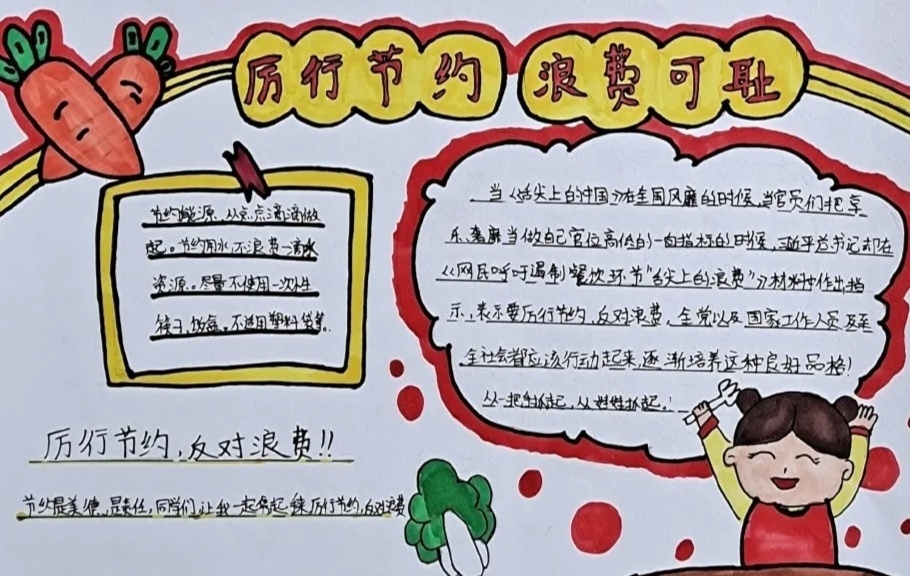 厉行节约 浪费可耻
节约能源、从点点滴滴做
起。节约用水、不浪费一滴水
资源。尽量不使用一次性
筷子、饭盒、不适用塑料袋等
当《舌尖上的中国》在全国风靡的时候,当官员们把享
乐、奢靡当做自己官位高低的一向指标的时候,习近平总书记却在
《网民呼吁遏制餐饮环节“舌尖上的浪费”》材料中作出指
示,表示要厉行节约,反对浪费,全党以及国家工作人员及至
全社会都应该行动起来,逐渐培养这种良好品格!
从一把手抓起,从娃娃抓起!
厉行节约,反对浪费!!
节约是美德,是责任,同学们让我一起来厉行节约,反对浪费